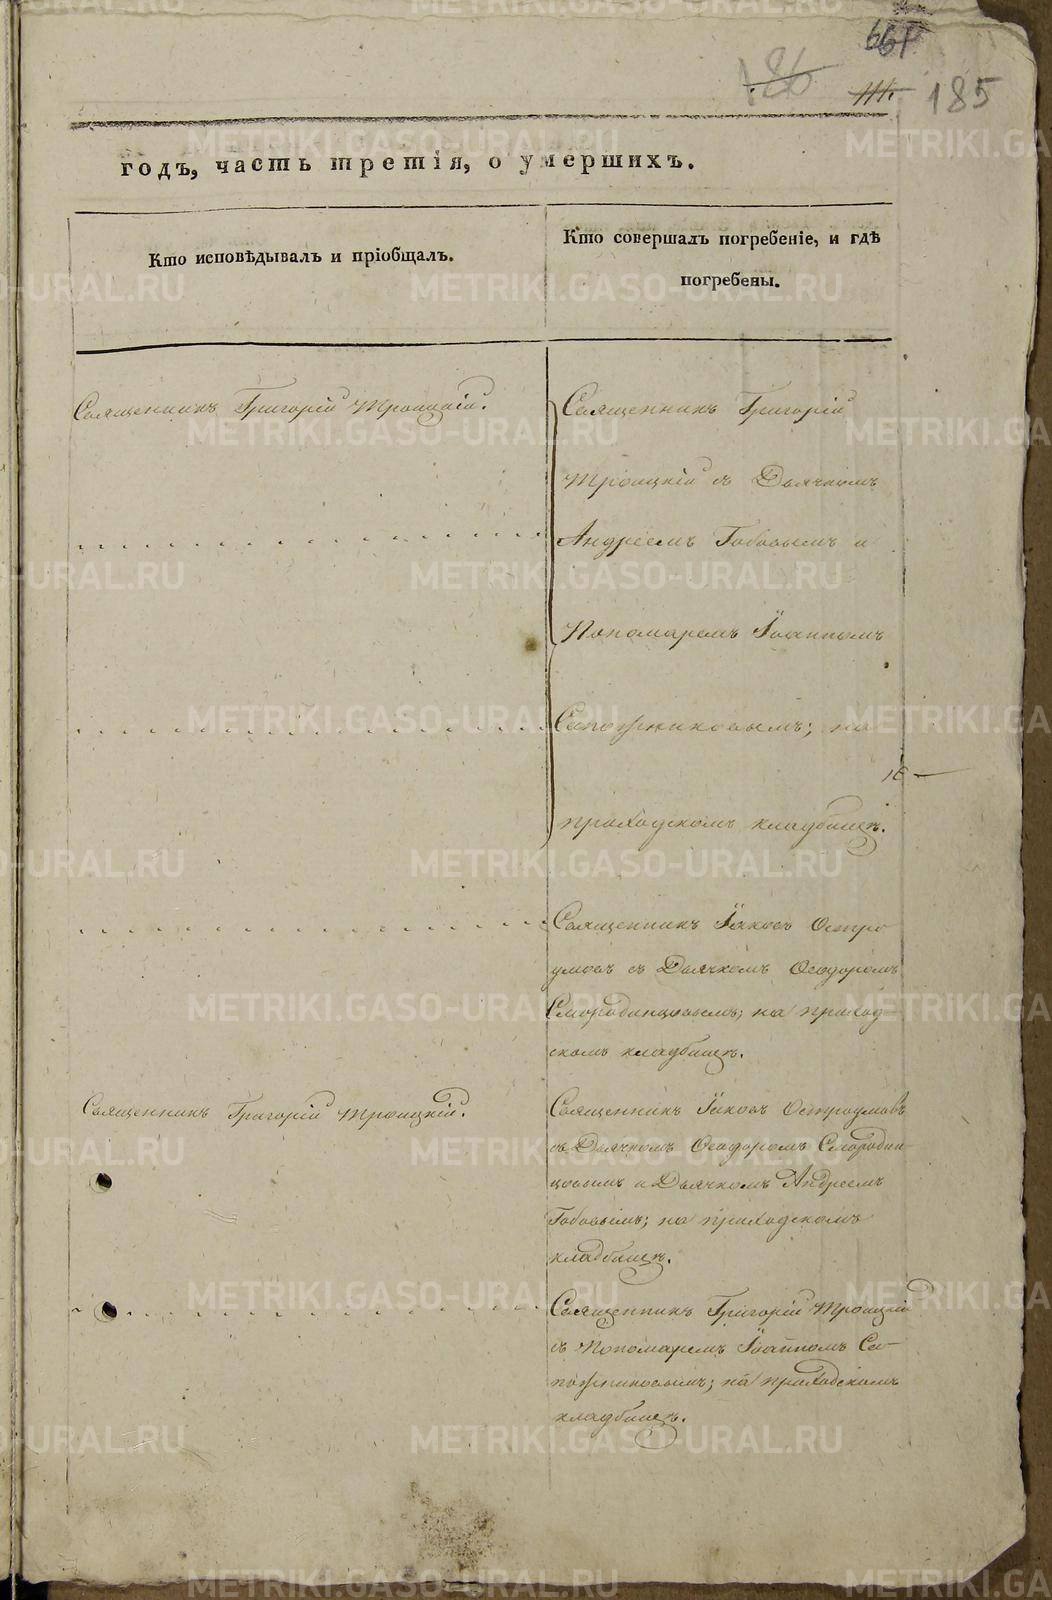 661
186
111.
185
годъ, часть третія, о умершихъ.
Кто исповѣдывалъ и пріобщалъ.
Кто совершалъ погребеніе, и гдѣ
погребены.
Священникъ Григорій Троицкій.
Священникъ Григорій
Троицкій съ Дьячкомъ
Андреемъ Бабовымъ и
Пономаремъ Іоанномъ
Сапожниковымъ; на
приходскомъ кладбищѣ.
Священникъ Іаковъ Остро
умовъ съ Дьячкомъ Ѳеодоромъ
Смородинцовымъ; на приход-
скомъ кладбищѣ.
Священникъ Григорій Троицкій.
Священникъ Іаковъ Остроумовъ
съ Дьячкомъ Ѳеодоромъ Смородин-
цовымъ и Дьячкомъ Андреемъ
на приходскомъ
кладбищѣ.
Священникъ Григорій Троицкій
съ Пономаремъ Іоанномъ Са-
пожниковымъ; на приходскомъ
кладбищѣ.
METRIKI.GASO-URAL.RU